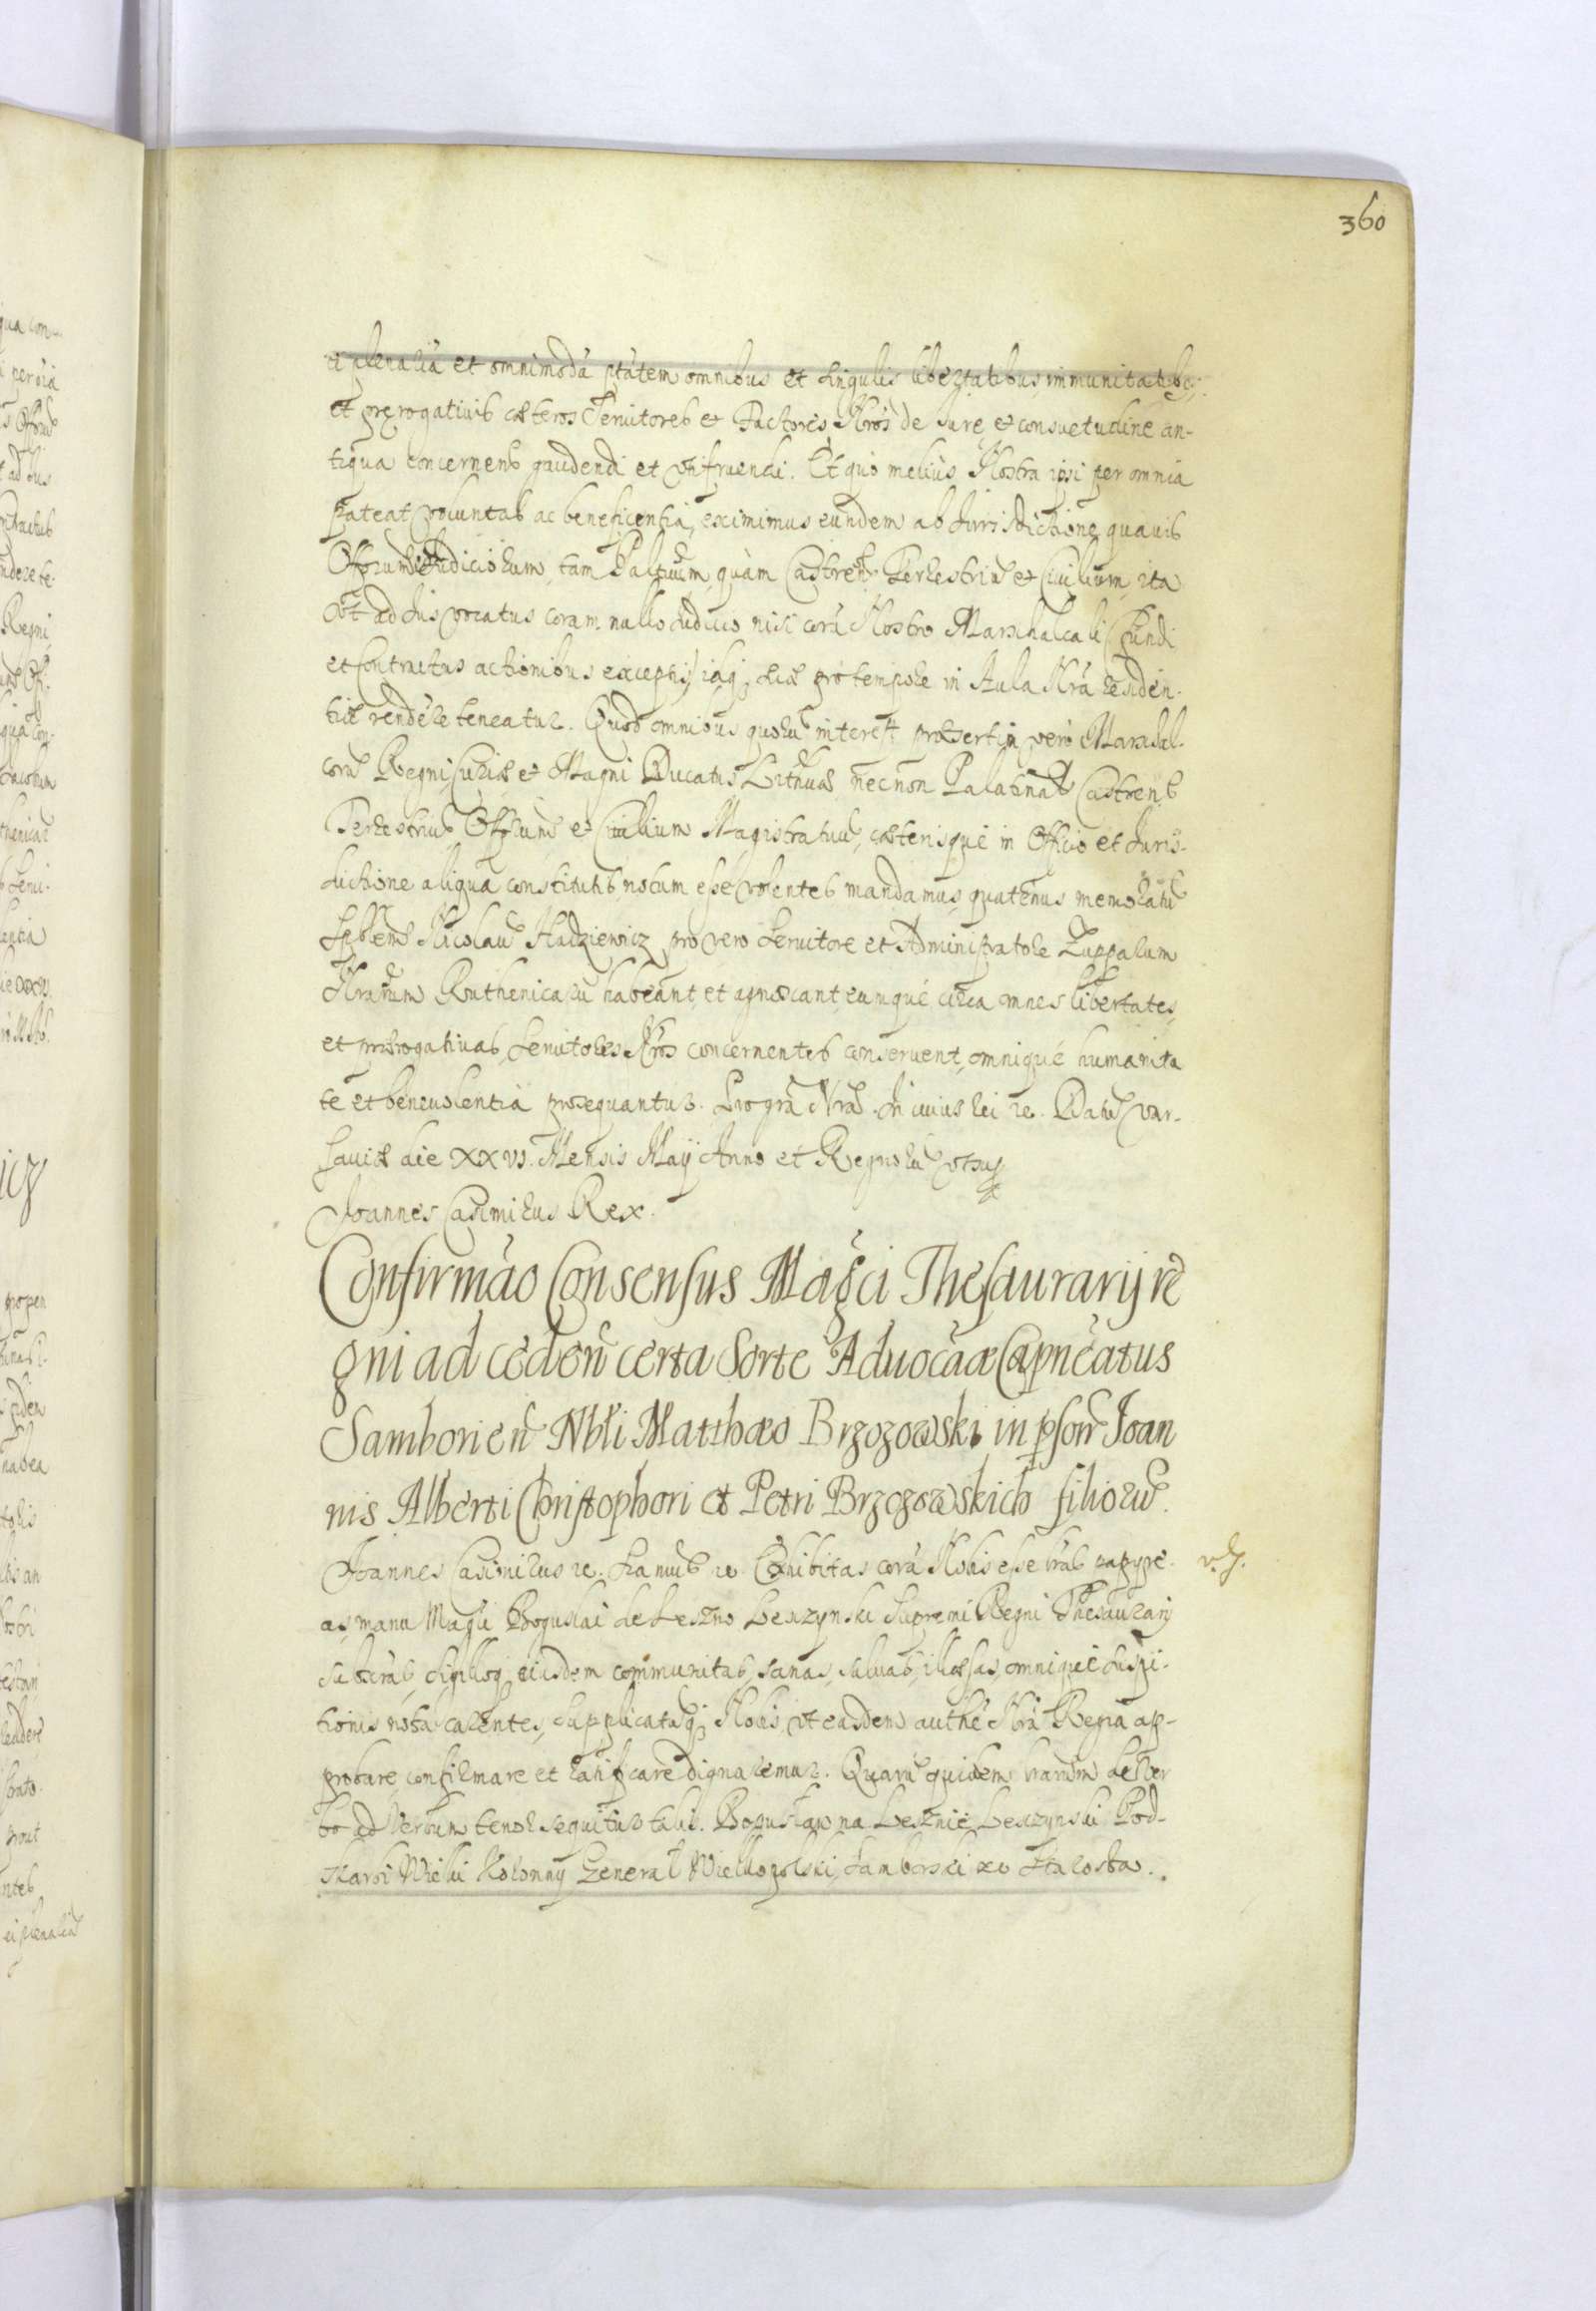 360
ei plenariã et omnimodã ptãtem omnibus et singulis libertatibus immunitatibq;
et prerogativis cæteros Servitores et Factores Nrõs de Iure et consuetudine an-
tiqua concernen̄ gaudendi et usifruendi. Et quo melius Nostra ipsi per omnia
pateat voluntas ac beneficentia, eximimus eundem ab Iurisdictione quavis
Offorum et Iudiciorum, tam Paltuum, quàm Castren̄ Terrestriũ et Civilium, ita
Vt ad Ius vocatus coram nullo Iudicio nisi corã Nostro Marschalcali (fundi
et contractus actionibus exceptis) iãq; diæ pro tempore in Aula Nrã residen-
tiæ rendere teneatur. Quod omnibus quorũ interest præsertim vero Marschal-
corũ Regni Curiæ et Magni Ducatus Litnuæ necnon Palatinal Castren̄
Terrestriũ Offorum et Civilium Magistratuũ, cæterisque in Officio et Iuris-
dictione aliqua constitutis, notum esse volentes mandamus, quatenus memoratũ
Nicolaũ Hadziewicz pro vero Servitore et Administratore Zupparum
Nrarum Ruthenicarũ habeant, et agnoscant, eumque circa omnes libertates,
et prærogativas, Servitores Nrõs concernentes conservent, omnique humanita
te et benevolentia prosequantur. Pro grã Nrã. In cuius rei &c. Datũ Var-
saviæ die XXVI. Mensis Maÿ Anno et Regnorũ
Joannes Casimirus Rex.
Confirmão Consensus Magci Thesaurarij re
gni ad ceden̄ certa Sorte Aduocãæ Capneatus
Samborien̄ Nbli Matthæo Brzozowski in psoñ Joan
nis Alberti Christophori et Petri Brzozowskich filiorũ.
Joannes Casimirus &c. &c. Exhibitas corã Nobis esse lrãs papyre-
as, manu Magci Boguslai de Leszno Leszczynski Supremi Regni Thesaurarij
subscrãs, sigilloq; eiusdem communitas, sanas, salvas, illæsas, omnique suspi-
tionis nota carentes, supplicatũq; Nobis, vt easdem authẽ Nrã Regia ap-
probare, confirmare et ratificare dignaremur. Quarũ quidem lrarum de ver
bo ad verbum tenor sequitur talis. Bogusław na Lesznie Leszczynski Pod-
skarbi Wielki Koronny General Wielkopolski, Samborski &c Starosta.